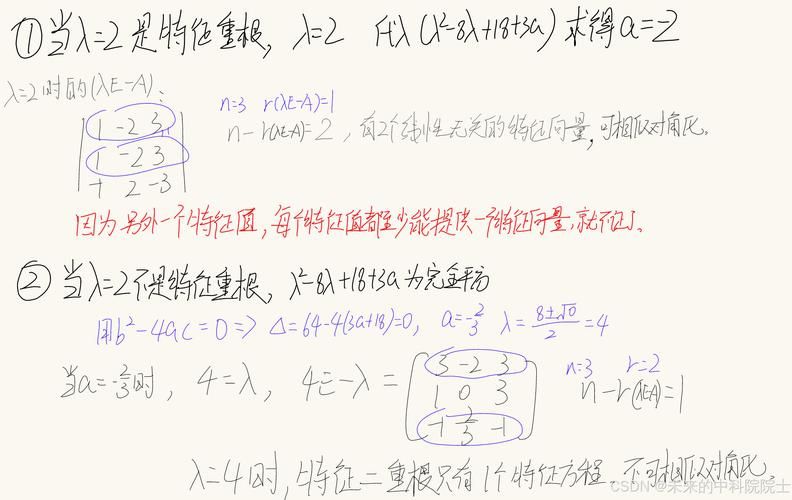 ①当λ=2是特征重根，λ=2 代入(λ²-8λ+18+3a)求得a=-2
λ=2时的(λE-A)：
n=3 r(λE-A)=1
1 -2 3
n-r(λE-A)=2，有2个线性无关的特征向量，可相似对角化。
1 -2 3
-1 2 -3
因为另外一个特征值，每个特征值都至少能提供一个特征向量，就不证了。
②当λ=2不是特征重根，λ²-8λ+18+3a为完全平方
用b²-4ac=0=> Δ=64-4(3a+18)=0, a=-2/3 λ=(8±√0)/2=4
当a=-2/3时，4=λ，4E-λ=
3 -2 3
n=3 r=2
1 0 3
n-r(λE-A)=1
-1 2/3 -1
λ=4时，特征二重根只有1个特征方程，不可相似对角化。
CSDN @未来的中科院院士